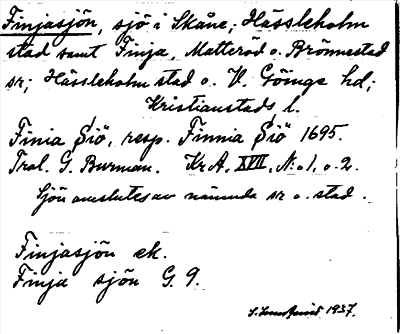 Finjasjön, sjö i Skåne; Hässleholm
stad samt Finja, Matteröd o. Brönnestad
sr; Hässleholm stad o. V. Göinge hd;
Kristianstads l.
Finia Siö, resp. Finnia Siö 1695.
Trol. G. Burman. Kr A. XVII, N:o 1, o. 2.
Sjön omslutes av nämnda sr o. stad.
Finjasjön ek.
Finja sjön G. 9.
1937.